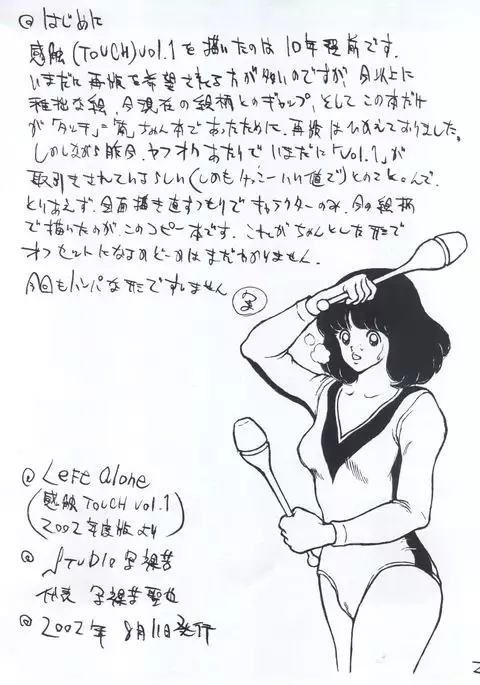 ◎はじめに
感触(TOUCH)vol.1を描いたのは10年程前です.
いまだに再版を希望される方が多いのですが、今以上に
稚拙な絵、今現在の絵柄とのギャップ、そしてこの本だけ
が「タッチ」=「南」ちゃん本であったために、再版はひかえておりました。
しかしながら昨今、ヤフオクあたりでいまだに「Vol.1」が
取引きされているらしい(しかもけっこーいい値で)とのことなんで、
とりあえず、全面描き直すつもりでキャラクターのみ、今の絵柄
で描いたのが、このコピー本です。これがちゃんとした形で
オフセットになるかどーかはまだわかりません.
今回もハンパな形ですいません
◎Left alone
(感触 TOUCH vol.1)
2002年度版より
◎STUDIO
代表
◎2002年 8月11日発行
2